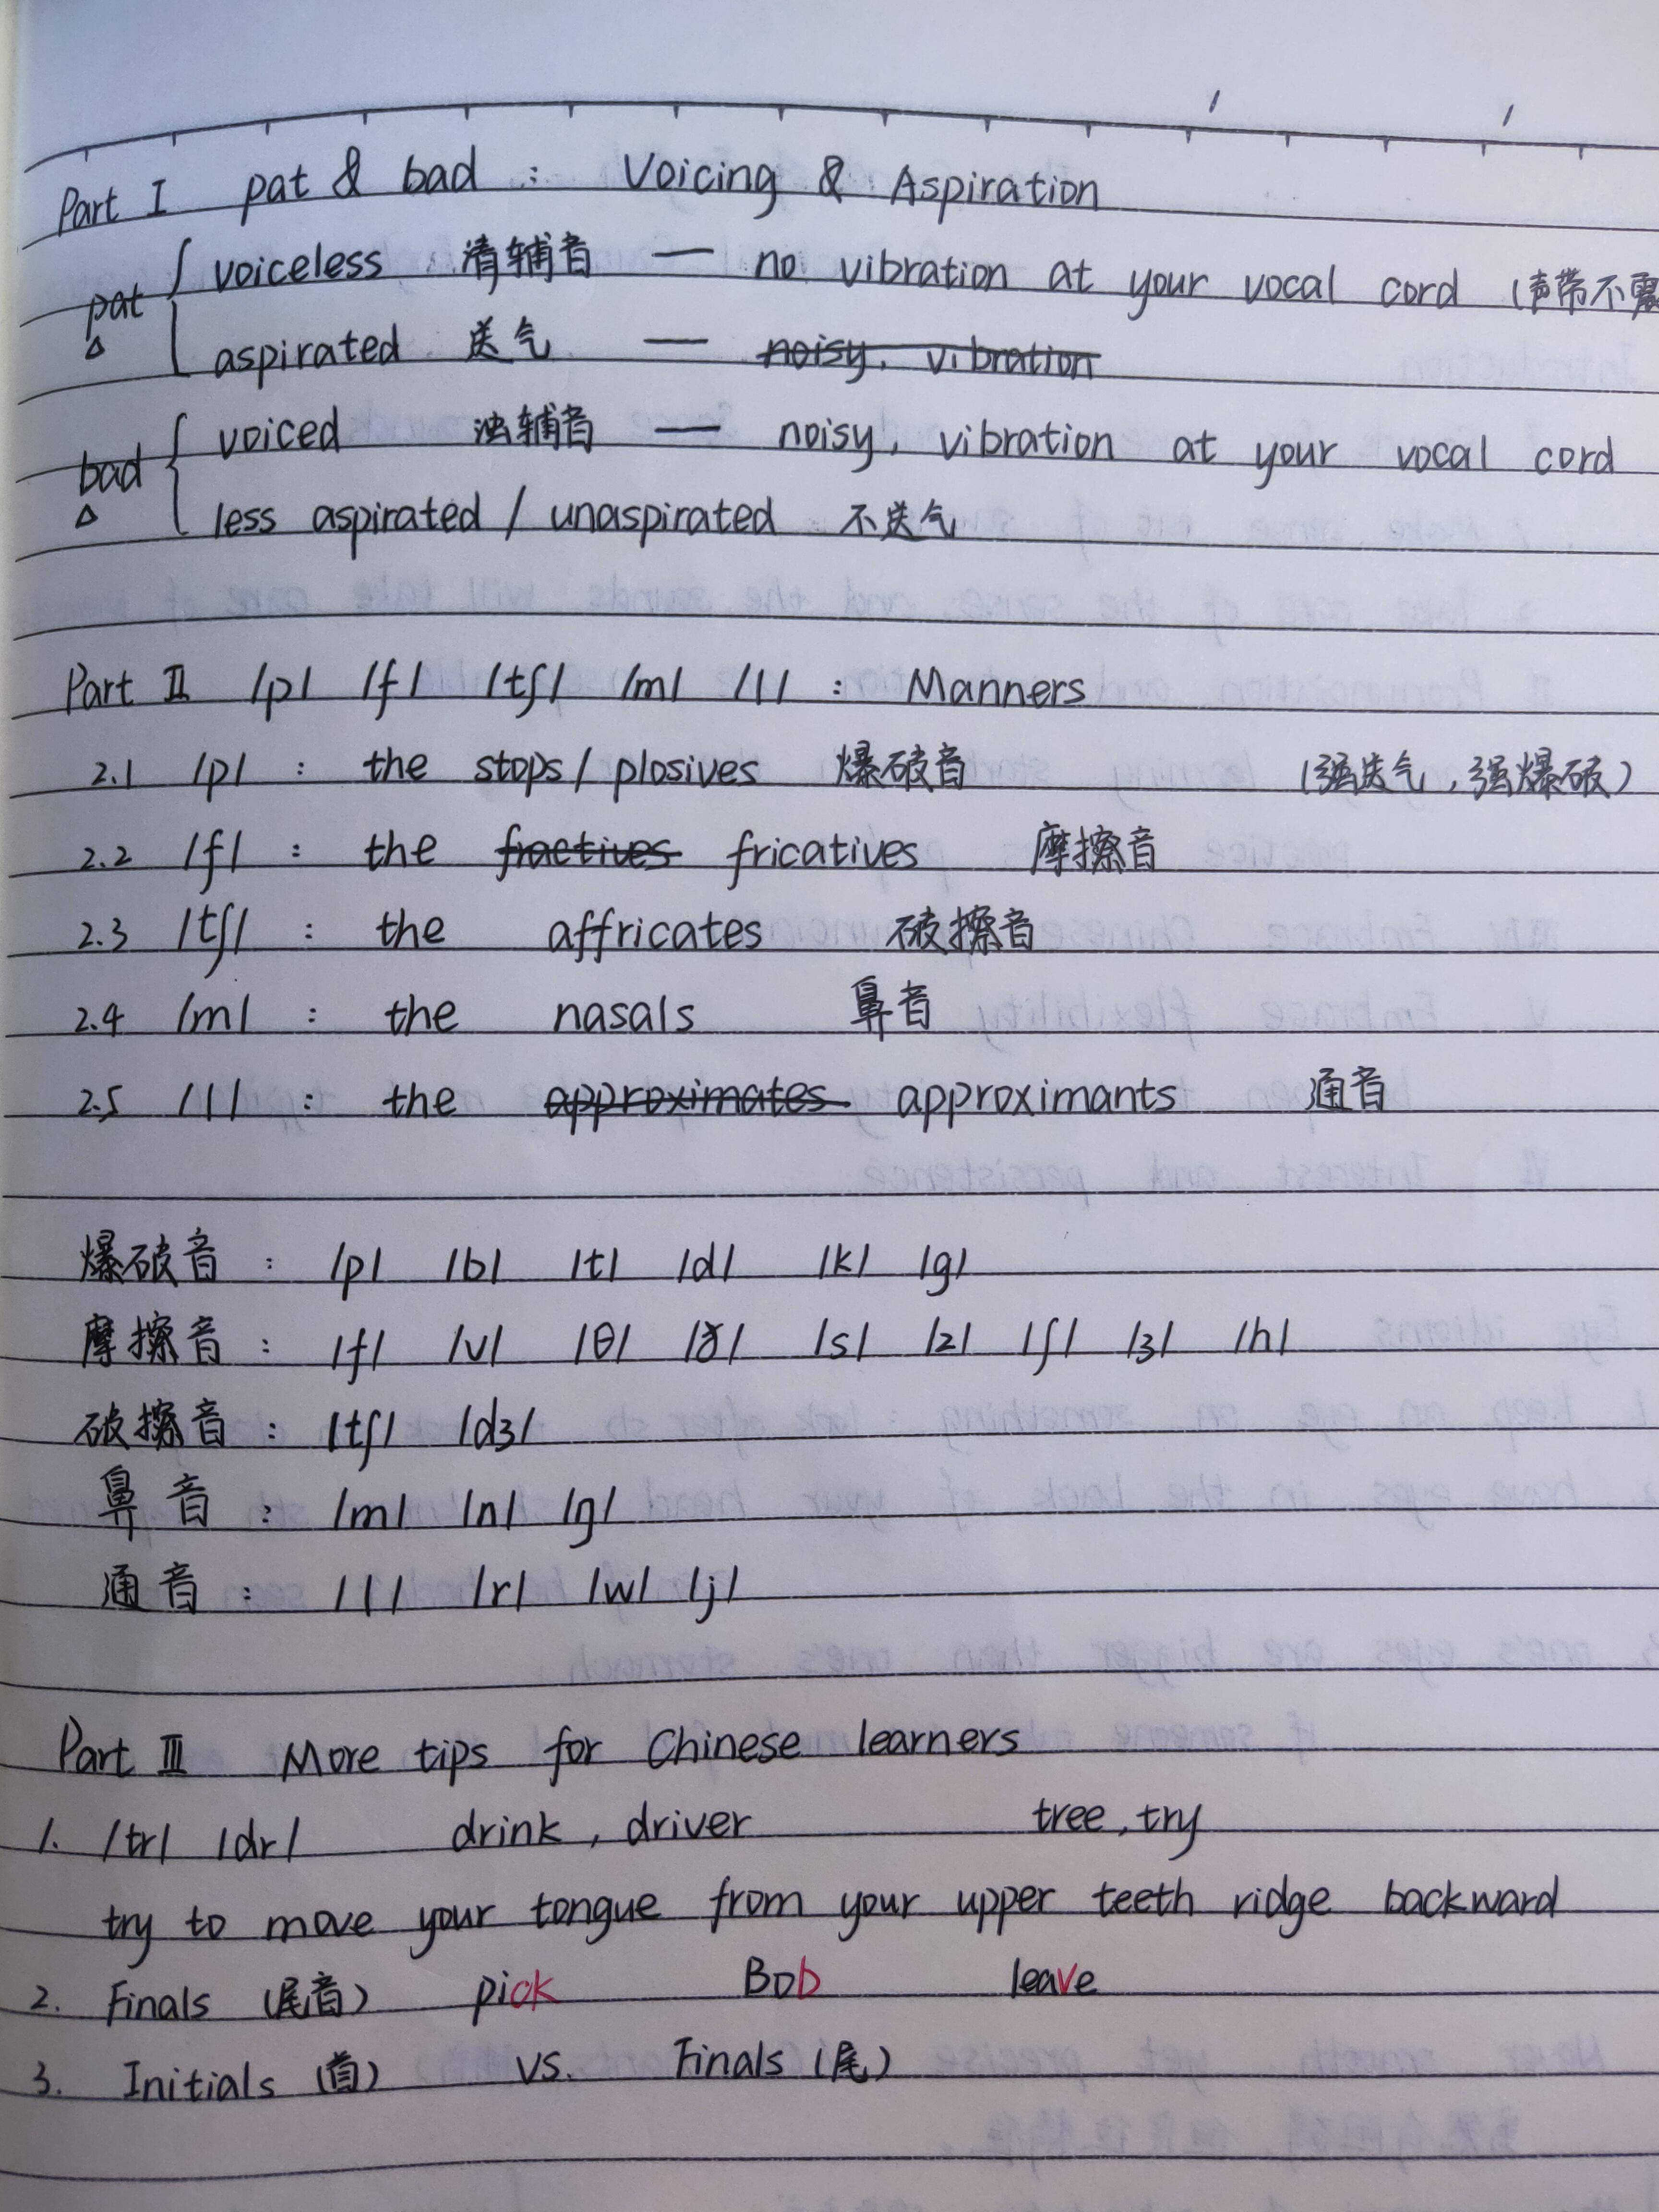 Part I pat & bad : Voicing & Aspiration
voiceless 清辅音 — no vibration at your vocal cord (声带不震
pat
aspirated 送气 — ~~noisy, vibration~~
voiced 浊辅音 — noisy, vibration at your vocal cord
bad
less aspirated / unaspirated 不送气
Part II /p/ /f/ /tʃ/ /m/ /l/ : Manners
2.1 /p/ : the stops/plosives 爆破音 (强送气,强爆破)
2.2 /f/ : the ~~fractives~~ fricatives 摩擦音
2.3 /tʃ/ : the affricates 破擦音
2.4 /m/ : the nasals 鼻音
2.5 /l/ : the ~~approximates~~ approximants 通音
爆破音 : /p/ /b/ /t/ /d/ /k/ /g/
摩擦音 : /f/ /v/ /θ/ /ð/ /s/ /z/ /ʃ/ /ʒ/ /h/
破擦音 : /tʃ/ /dʒ/
鼻音 : /m/ /n/ /ŋ/
通音 : /l/ /r/ /w/ /j/
Part III More tips for Chinese learners
1. /tr/ /dr/ drink, driver tree, try
try to move your tongue from your upper teeth ridge backward
2. Finals (尾音) pick Bob leave
3. Initials (首) VS. Finals (尾)